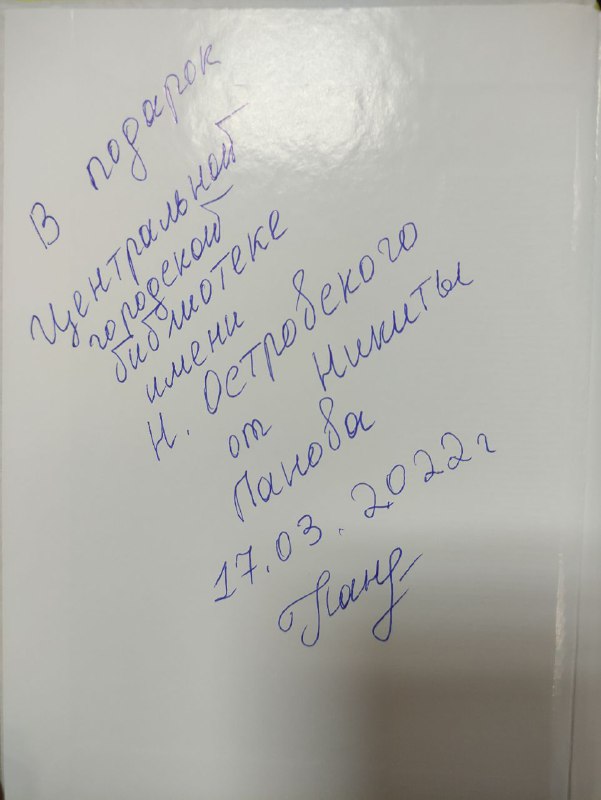 В подарок
Центральной
городской
библиотеке
имени
Н. Островского
от Никиты
Панова
17.03.2022 г